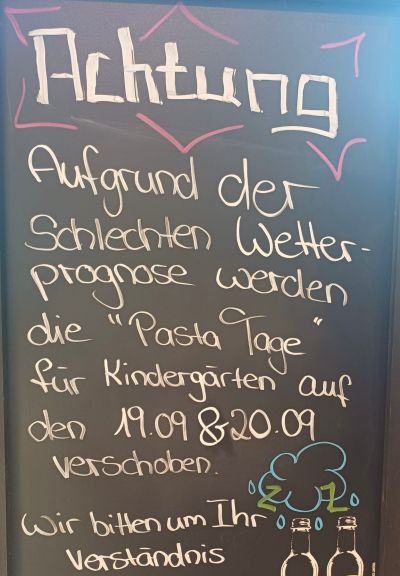 Achtung
Aufgrund der
Schlechten Wetter-
prognose werden
die "Pasta Tage"
für Kindergärten auf
den 19.09 & 20.09
verschoben.
Z Z
Wir bitten um Ihr
Verständnis